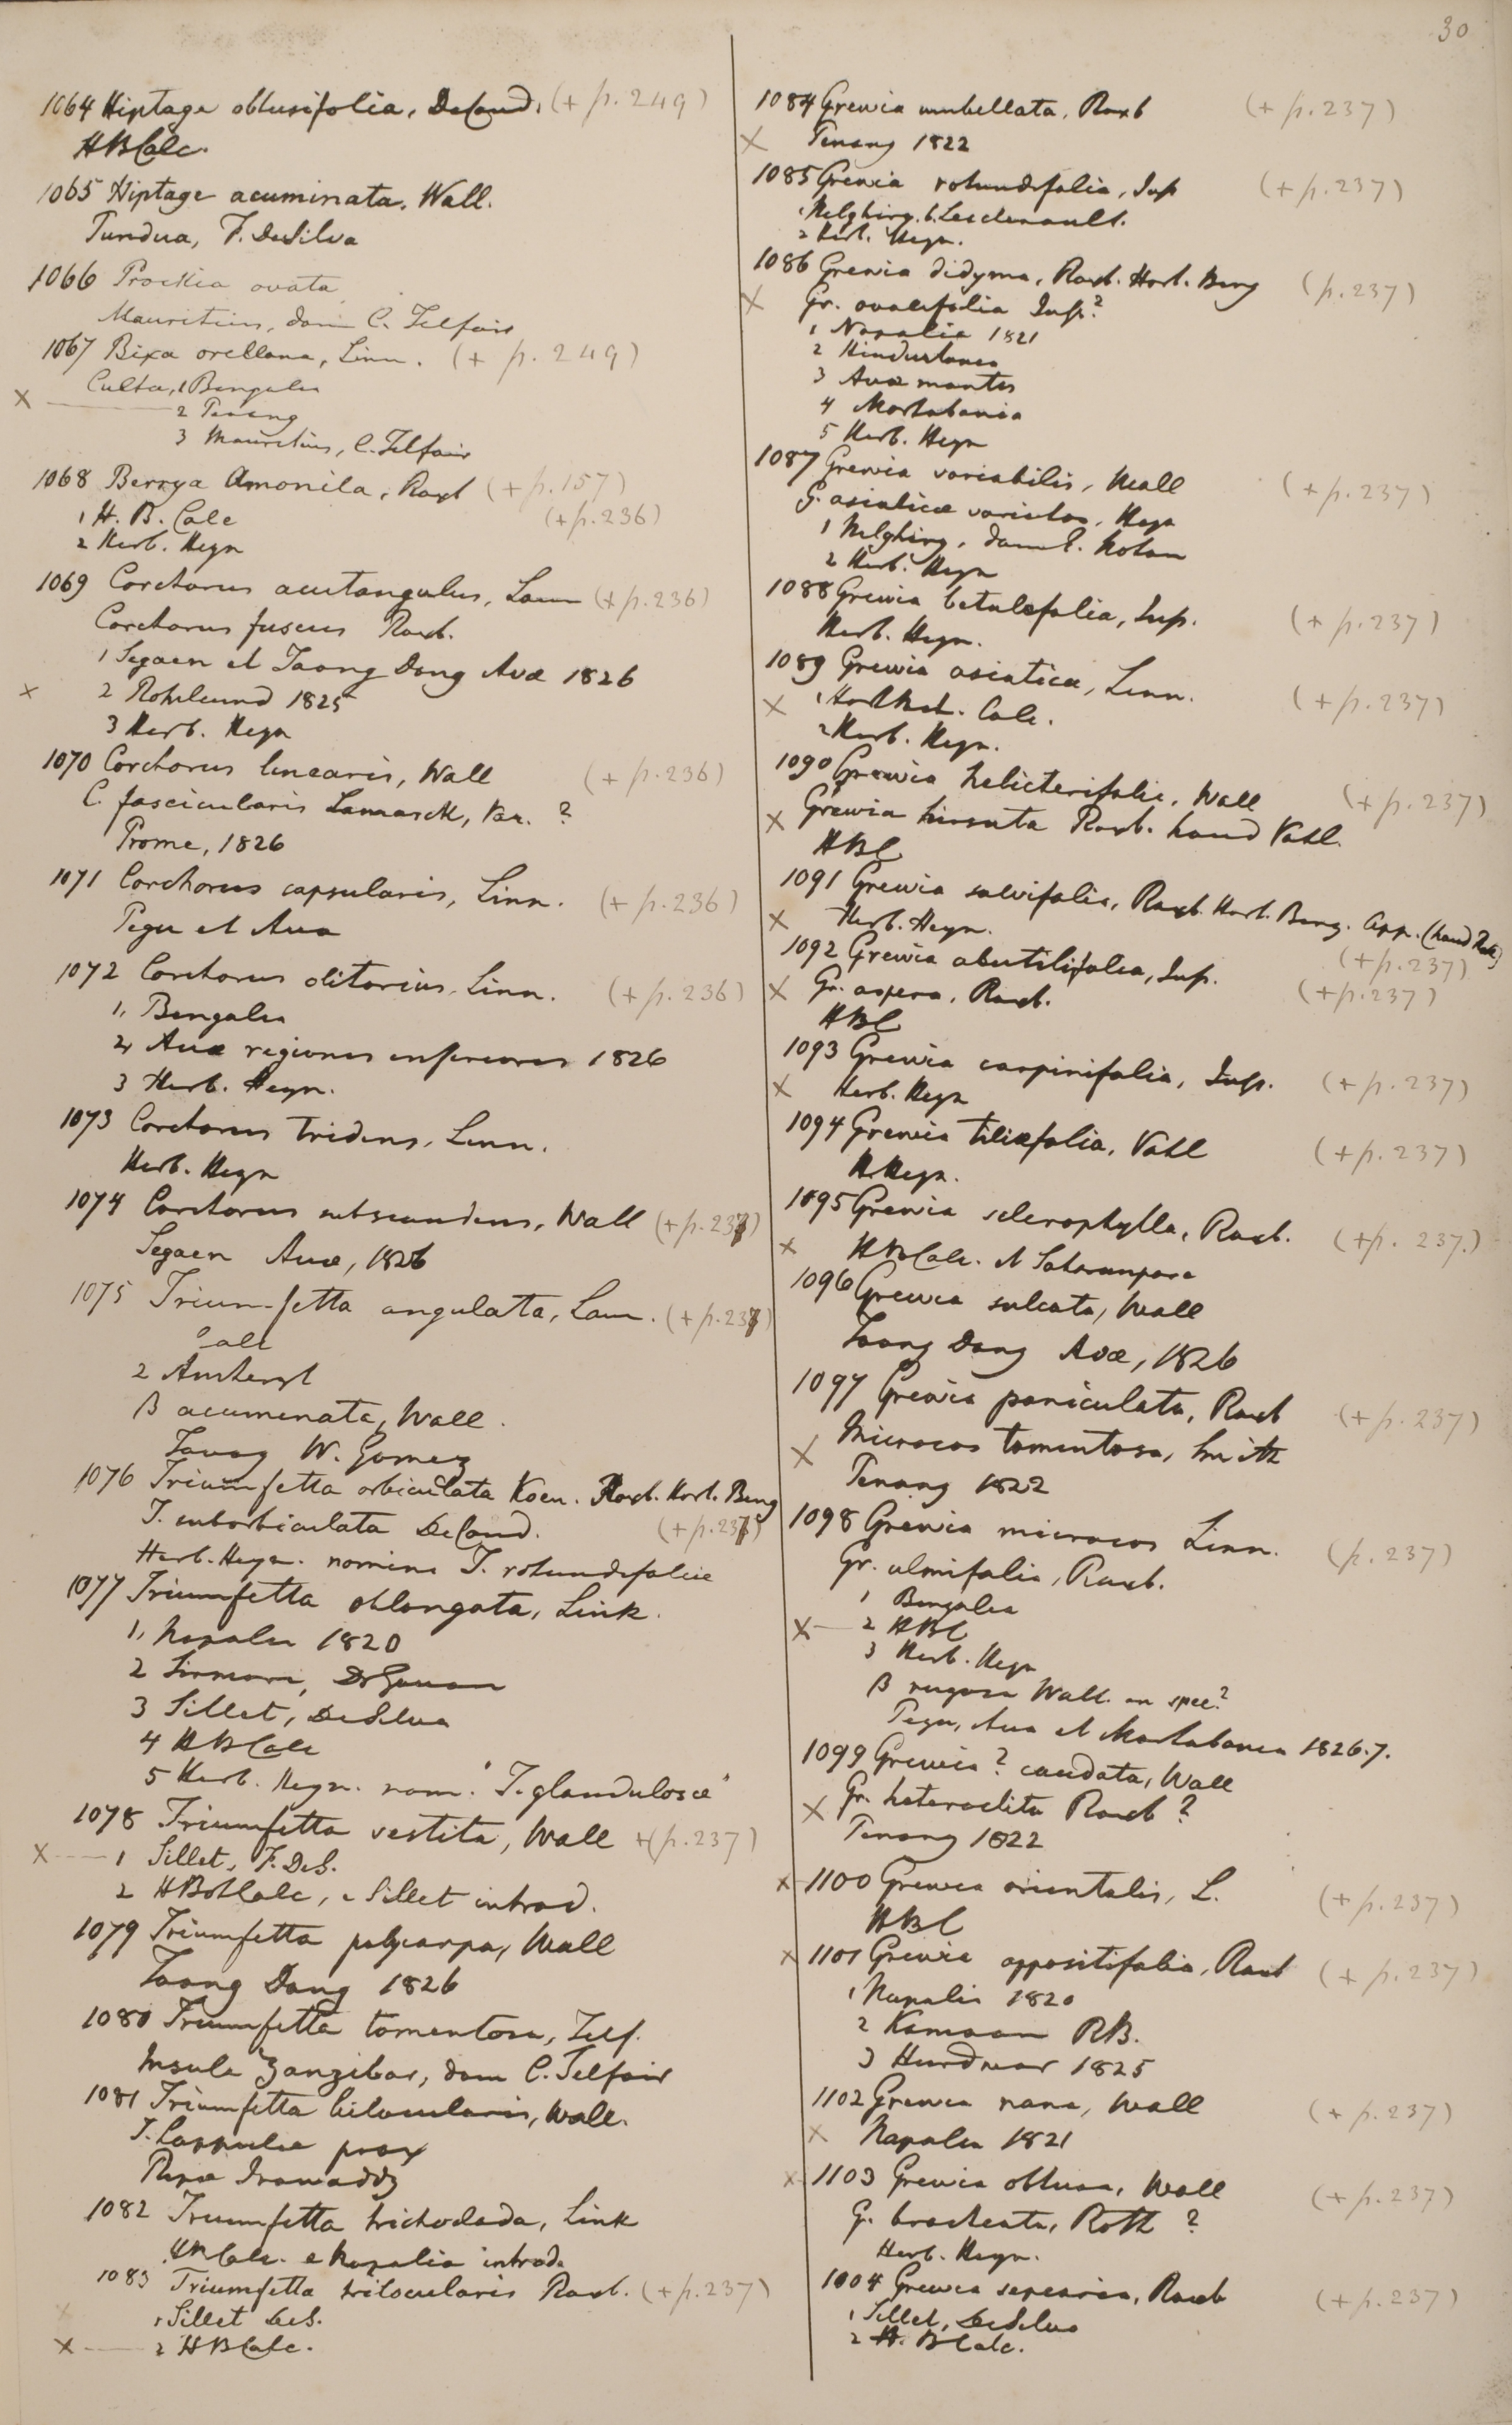 30
1064 Hiptage obtusifolia, DeCand. (+ p. 249)
HBCalc.
1065 Hiptage acuminata, Wall.
Pundua, F. DeSilva
1066 Prockia ovata
Mauritius, dom C. Telfair
1067 Bixa orellana, Linn. (+ p. 249)
Culta, 1 Bengalia
X 2 Penang
3 Mauritius, C. Telfair
1068 Berrya Amonila, Roxb (+ p. 157)
1 H. B. Calc (+p. 236)
2 Herb. Heyn
1069 Corchorus acutangulus, Lam (+ p. 236)
Corchorus fuscus Roxb.
1 Segaen et Taong Dong Avæ 1826
X 2 Rohilcund 1825
3 Herb. Heyn
1070 Corchorus linearis, Wall (+ p. 236)
C. fascicularis Lamarck, Var. ?
Prome, 1826
1071 Corchorus capsularis, Linn. (+ p. 236)
Pegu et Ava
1072 Corchorus olitorius, Linn. (+ p. 236)
1, Bengalia
2, Avæ regiones inferiores 1826
3 Herb. Heyn.
1073 Corchorus tridens, Linn.
Herb. Heyn
1074 Corchorus subscandens, Wall (+ p. 237)
Segaen Avæ, 1826
1075 Triumfetta angulata, Lam. (+ p. 237)
Calc
2 Amherst
β acuminata, Wall.
Tavoy W. Gomez
1076 Triumfetta orbiculata Koen. Roxb. Hort. Beng
T. suborbiculata DeCand. (+ p. 237)
Herb. Heyn. nomine T. rotundifoliæ
1077 Triumfetta oblongata, Link.
1, Napalia 1820
2 Sirmore, Dr Govan
3 Sillet, DeSilva
4 HBCalc
5 Herb. Heyn. nom. "T. glandulosæ"
1078 Triumfetta vestita, Wall +(p. 237)
X 1 Sillet, F. DeS.
2 HBotCalc, e Sillet introd.
1079 Triumfetta polycarpa, Wall
Taong Dong 1826
1080 Triumfetta tomentosa, Telf.
Insula Zanzibar, dom C. Telfair
1081 Triumfetta bilocularis, Wall.
T. Lappulæ prox
Ripæ Irawaddy
1082 Triumfetta trichoclada, Link
HBCalc. e Napalia introd.
1083 Triumfetta trilocularis Roxb. (+ p. 237)
1 Sillet DeS.
X 2 HBCalc.
1084 Grewia umbellata, Roxb (+ p. 237)
X Penang 1822
1085 Grewia rotundifolia, Jup (+ p. 237)
1 Nelghirg. b. Leschenault.
2 Herb. Heyn.
1086 Grewia didyma, Roxb. Hort. Beng (p. 237)
X Gr. ovalifolia Jup.?
1 Napalia 1821
2 Hindustania
3 Avæ montes
4 Martabania
5 Herb. Heyn
1087 Grewia variabilis, Wall (+ p. 237)
G. asiaticæ varietas, Heyn
1 Nelghirg, dom E. Noton
2 Herb. Heyn
1088 Grewia betulefolia, Jup. (+ p. 237)
Herb. Heyn.
1089 Grewia asiatica, Linn. (+ p. 237)
X 1 HortBot. Calc.
2 Herb. Heyn.
1090 Grewia helicterifolia, Wall (+ p. 237)
X Grewia hirsuta Roxb. haud Vahl.
HBC
1091 Grewia salvifolia, Roxb. Hort. Beng. app. (haud Roth)
X Herb. Heyn. (+ p. 237)
1092 Grewia abutilifolia, Jup. (+ p. 237)
X Gr. aspera, Roxb.
HBC
1093 Grewia carpinifolia, Jup. (+ p. 237)
X Herb. Heyn
1094 Grewia tiliæfolia, Vahl (+ p. 237)
HHeyn.
1095 Grewia sclerophylla, Roxb. (+ p. 237.)
X HBCalc. et Saharunpore
1096 Grewia sulcata, Wall
Taong Dong Avæ, 1826
1097 Grewia paniculata, Roxb (+ p. 237)
X Microcos tomentosa, Smith
Penang 1822
1098 Grewia microcos Linn. (p. 237)
Gr. ulmifolia, Roxb.
1 Bengalia
X 2 HBC
3 Herb. Heyn
β rugosa Wall. an spec?
Pegu, Ava et Martabania 1826.7.
1099 Grewia? caudata, Wall
X Gr. heteroclita Roxb ?
Penang 1822
X 1100 Grewia orientalis, L. (+ p. 237)
HBC
X 1101 Grewia oppositifolia, Roxb (+ p. 237)
1 Napalia 1820
2 Kamaon RB.
3 Hurdwar 1825
1102 Grewia nana, Wall (+ p. 237)
X Napalia 1821
X 1103 Grewia obtusa, Wall (+ p. 237)
G. bracteata, Roth ?
Herb. Heyn.
1004 Grewia sepiaria, Roxb (+ p. 237)
1 Sillet, DeSilva
2 H. BCalc.